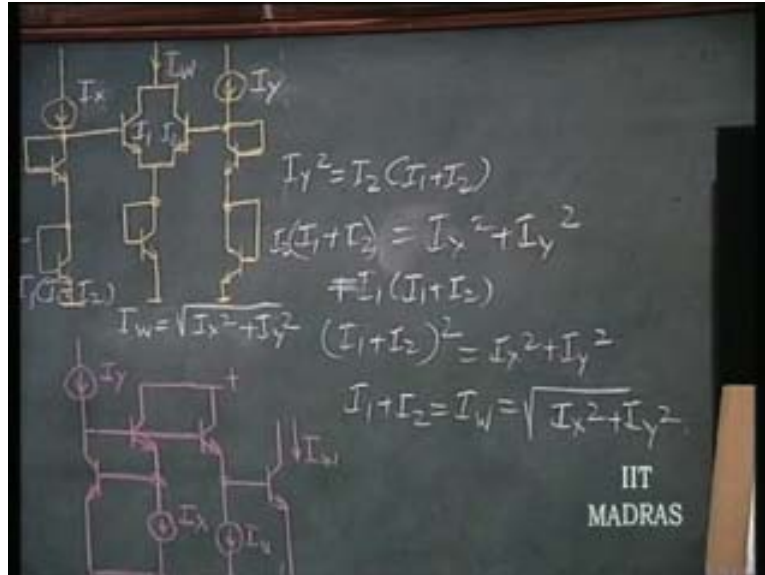 Ix
Iw
Iy
I1 I2
Iy² = I2 (I1+I2)
I2(I1+I2) = Ix² + Iy²
+I1 (I1+I2)
Iw = √Ix²+Iy²
(I1+I2)² = Ix² + Iy²
I1+I2 = Iw = √Ix²+Iy²
Iy
+
Iw
Ix
Iu
IIT
MADRAS